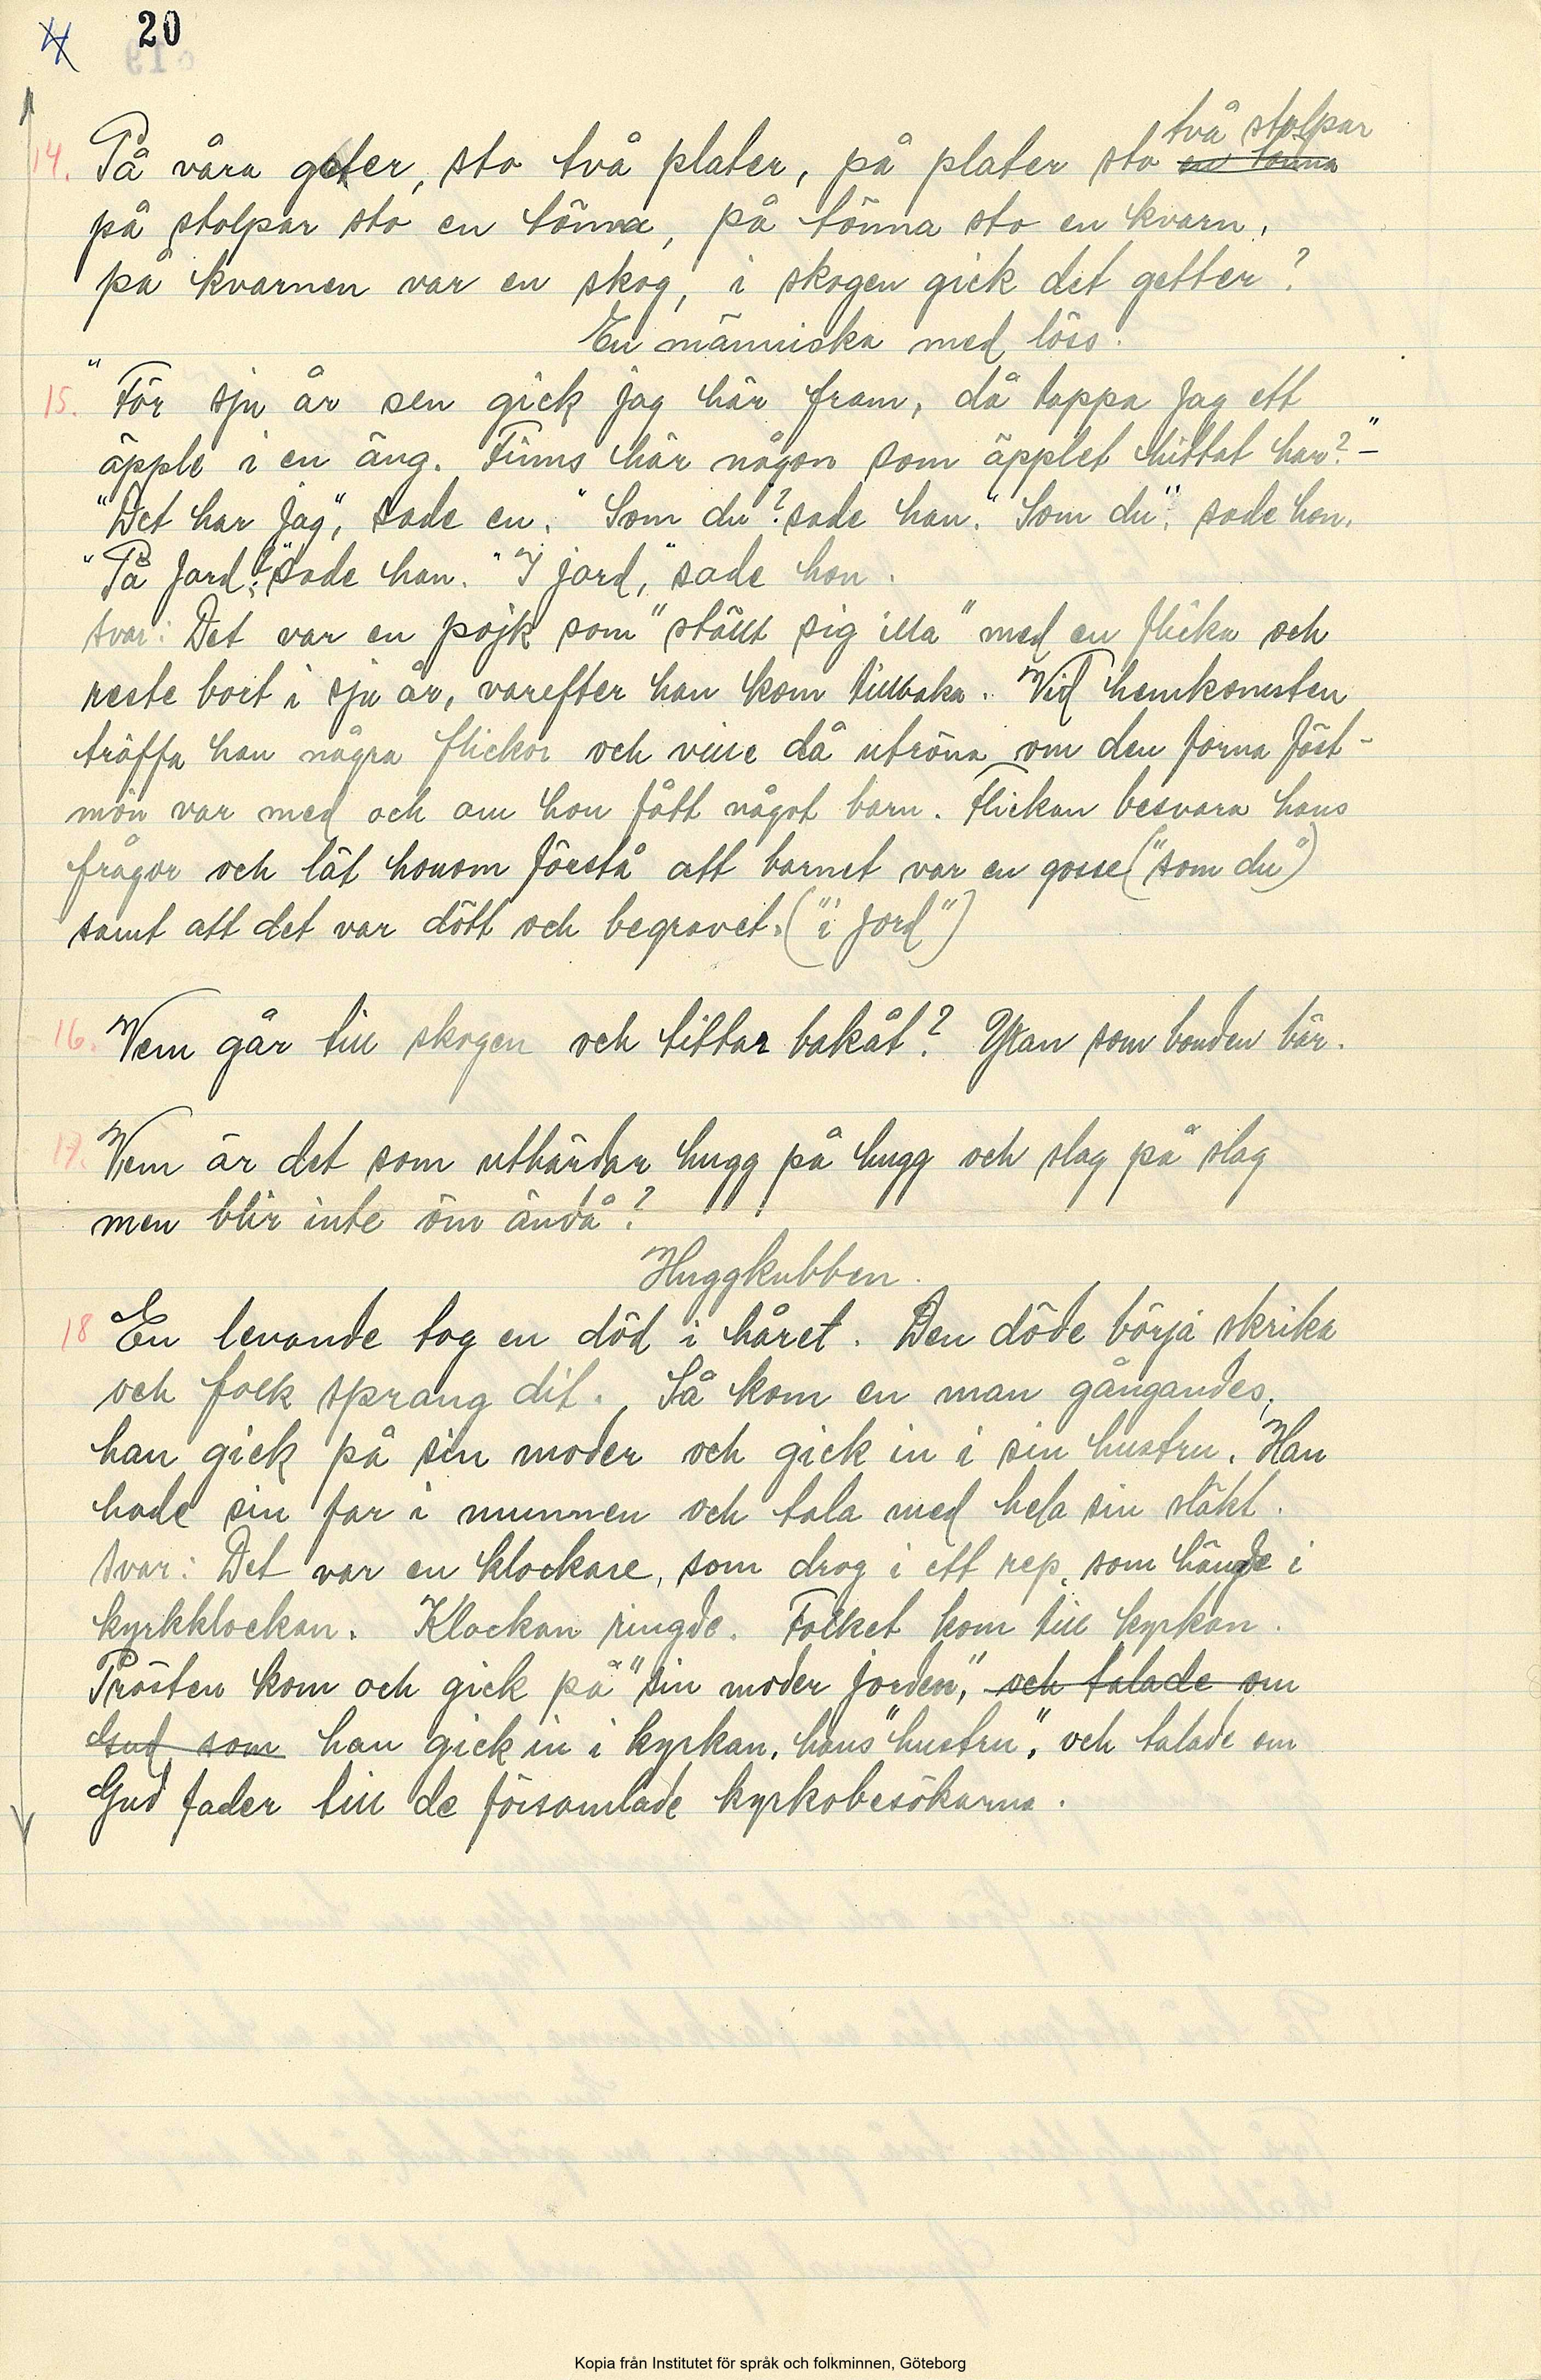 20
14. På våra gater, sto två plater, på plater sto två stolpar
på stolpar sto en tönna, på tönna sto en kvarn,
på kvarnen var en skog, i skogen gick det getter?
En människa med löss.
15. "För sju år sen gick jag här fram, då tappa jag ett
äpple i en äng. Finns här någon som äpplet hittat har?" -
"Det har jag", sade en. "Som du"? sade han. "Som du", sade hon.
"På jord?" sade han. "I jord," sade hon.
Svar: Det var en pojk som "ställt sig illa" med en flicka och
reste bort i sju år, varefter han kom tillbaka. Vid hemkomsten
träffa han några flickor och ville då utröna om den forna fäst-
mön var med och om hon fått något barn. Flickan besvara hans
frågor och lät honom förstå att barnet var en gosse ("som du")
samt att det var dött och begravet. ("i jord")
16. Vem går till skogen och tittar bakåt? Yxan som bonden bär.
17. Vem är det som uthärdar hugg på hugg och slag på slag
men blir inte öm ändå?
Huggkubben.
18 En levande tog en död i håret. Den döde börja skrika
och folk sprang dit. Så kom en man gångandes,
han gick på sin moder och gick in i sin hustru. Han
hade sin far i munnen och tala med hela sin släkt.
Svar: Det var en klockare, som drog i ett rep, som hängde i
kyrkklockan. Klockan ringde. Folket kom till kyrkan.
Prästen kom och gick på "sin moder jorden", och talade om
Gud som han gick in i kyrkan, hans "hustru", och talade om
Gud fader till de församlade kyrkobesökarna.
Kopia från Institutet för språk och folkminnen, Göteborg